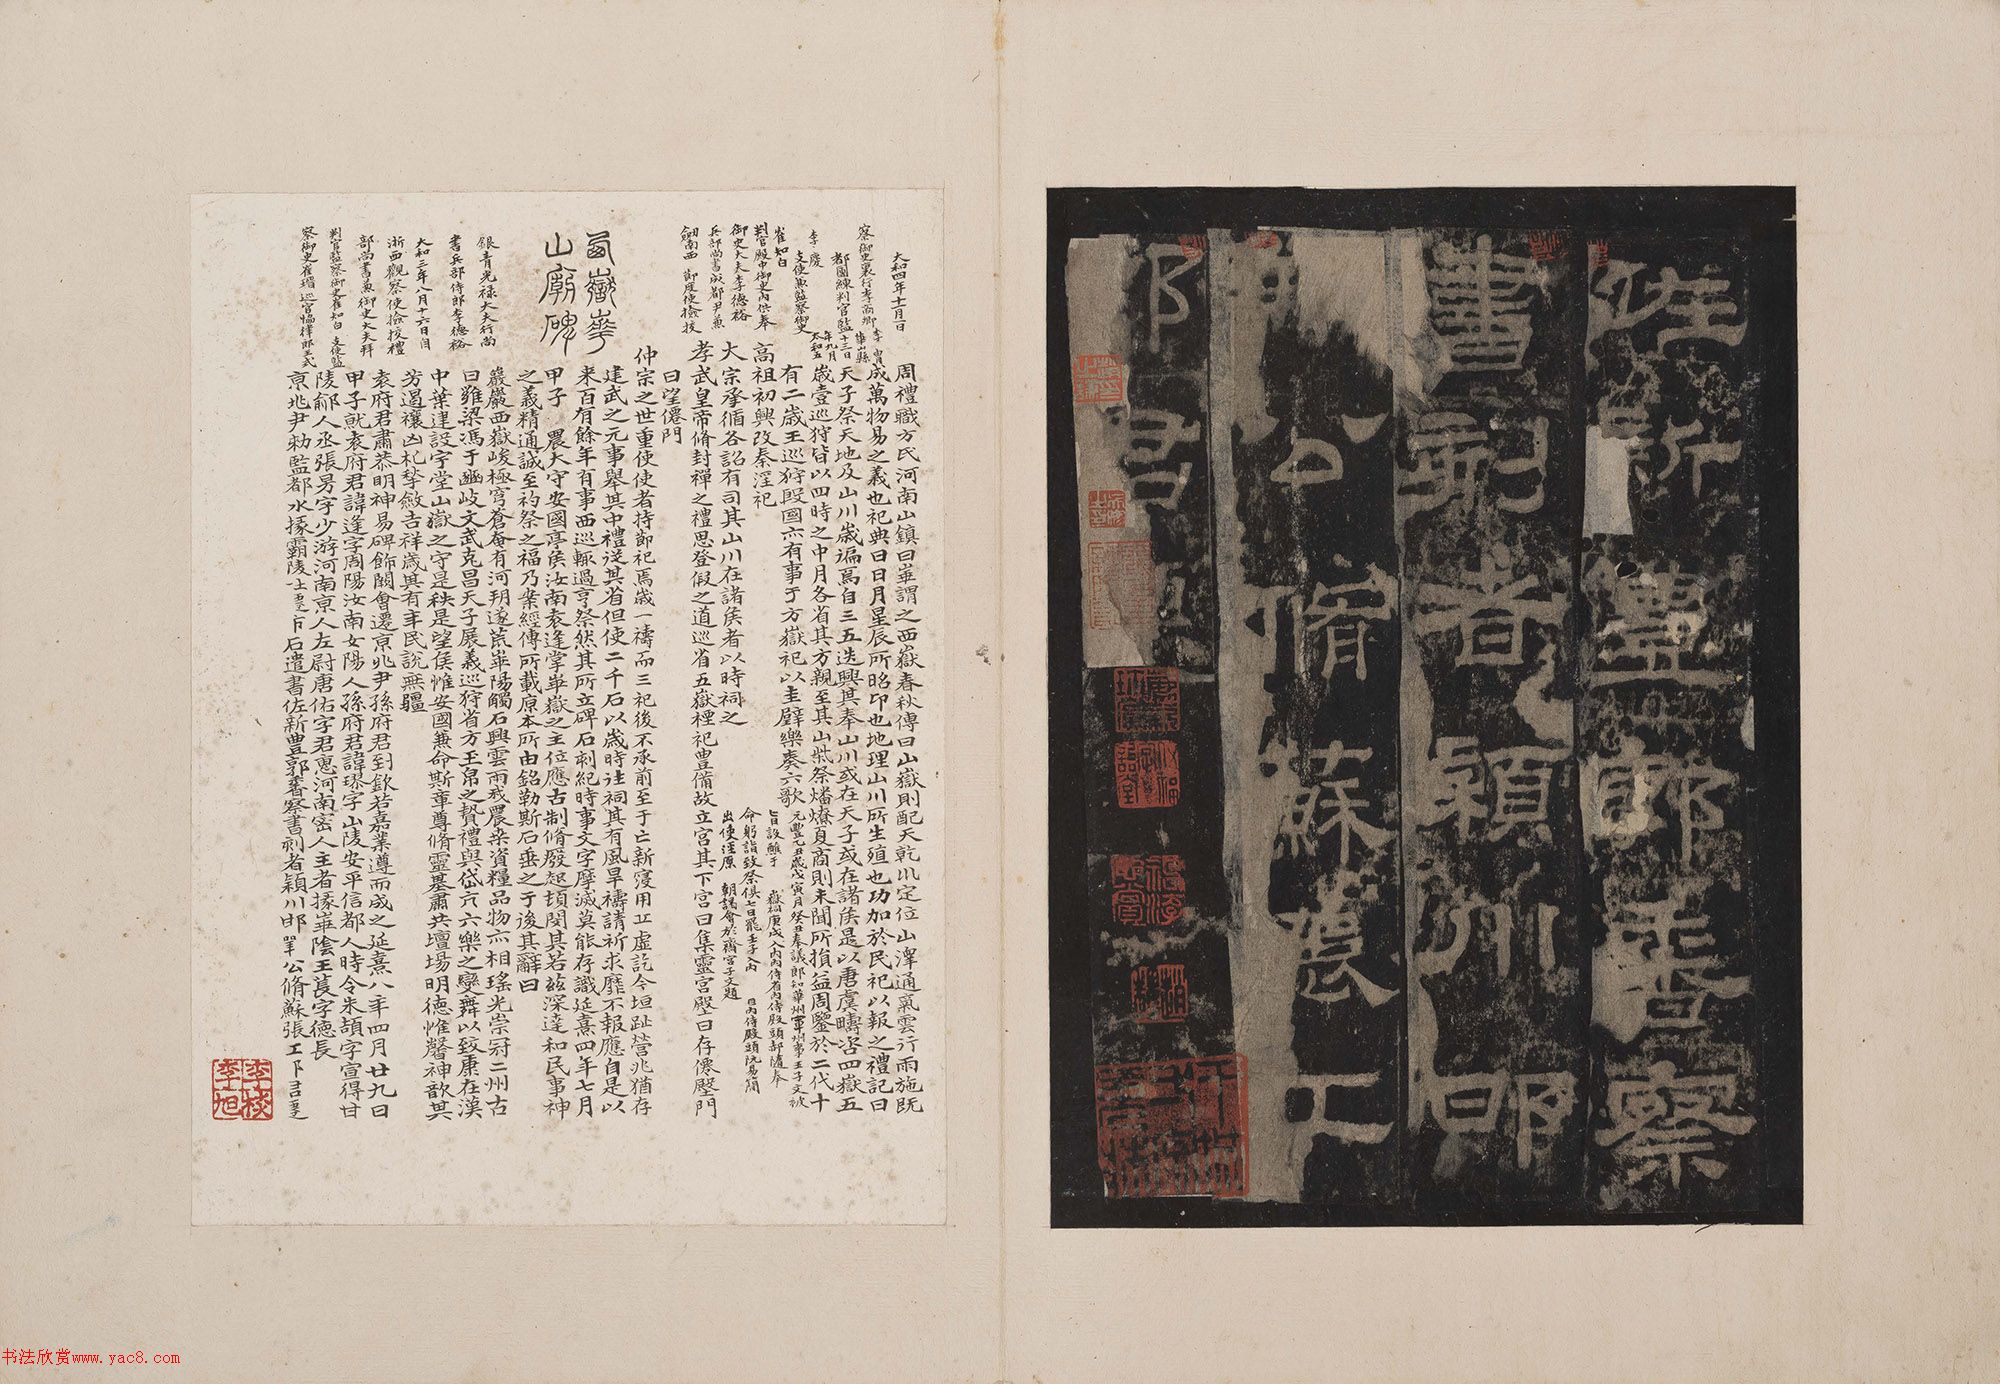 佐新豐郭香察
書刻者潁川邯
公脩蘇張工
君
大和四年十一月一日
察御史裏行李商卿
都團練判官監
支使兼監察御史
李慶
崔知白
判官殿中御史內供奉
御史大夫李德裕
兵部尚書成都尹兼
劍南西
李胄
華山縣
十三日
年九月
大和五
周禮職方氏河南山鎮曰崋謂之西嶽春秋傳曰山嶽則配天乾巛定位山澤通氣雲行雨施既
成萬物易之義也祀典曰日月星辰所昭卬也地理山川所生殖也功加於民祀以報之禮記曰
天子祭天地及山川歲徧焉自三五迭興其奉山川或在天子或在諸侯是以唐虞疇咨四嶽五
歲壹巡狩皆以四時之中月各省其方親至其山柴祭燔燎夏商則未聞所損益周鑒於二代十
有二歲王巡狩殷國亦有事于方嶽祀以圭璧樂奏六歌
高祖初興改秦淫祀
大宗承循各詔有司其山川在諸侯者以時祠之
孝武皇帝脩封禪之禮思登假之道巡省五嶽禋祀豐備故立宮其下宮曰集靈宮壂曰存僊壂門
曰望僊門
仲宗之世重使使者持節祀焉歲一禱而三祠後不承前至于亡新寖用丘虛訖今垣趾營兆猶存
建武之元事舉其中禮從其省但使二千石以歲時往祠其有風旱禱請祈求靡不報應自是以
来百有餘年有事西巡輒過亨祭然其所立碑石刻紀時事文字摩滅莫能存識延熹四年七月
甲子 農大守安國亭侯汝南袁逢掌崋嶽之主位應古制脩廢起頓閔其若茲深達和民事神
之義精通誠至礿祭之福乃案經傳所載原本所由銘勒斯石垂之于後其辭曰
巖巖西嶽峻極穹蒼奄有河朔遂荒崋陽觸石興雲雨我農桑資糧品物亦相瑤光崇冠二州古
曰雝梁馮于豳岐文武克昌天子展義巡狩省方玉帛之贄禮與岱亢六樂之變舞以致康在漢
中葉建設宇堂山嶽之守是秩是望侯惟安國兼命斯章尊脩靈基肅共壇場明德惟馨神歆其
芳遏禳凶札揫斂吉祥歲其有年民說無疆
袁府君肅恭明神易碑飾闕會遷京兆尹孫府君到欽若嘉業遵而成之延熹八年四月廿九日
甲子就袁府君諱逢字周陽汝南女陽人孫府君諱璆字山陵安平信都人時令朱頡字宣得甘
陵鄃人丞張昉字少游河南京人左尉唐佑字君惠河南密人主者掾崋陰王萇字德長
京兆尹勑監都水掾霸陵
石遣書佐新豐郭香察書刻者潁川邯
公脩蘇張工
元豐乙丑歲戊寅月癸丑奉議郎知華州軍州事王子文被
旨設醮于 嶽祠庚戌入內內侍省內侍殿頭郝隨奉
命躬詣致祭俱七日罷壬子入內 內侍殿頭阮易簡
出使涇原 朝謁會於齋宮子文題
西嶽崋
山廟碑
銀青光祿大夫行尚
書兵部侍郎李德裕
大和三年八月十六日自
浙西觀察使檢挍禮
部尚書兼御史大夫拜
判官監察御史崔知白 支使監
察御史崔瑨 巡官協律郎王式
李棪
李旭
书法欣赏www.yac8.com